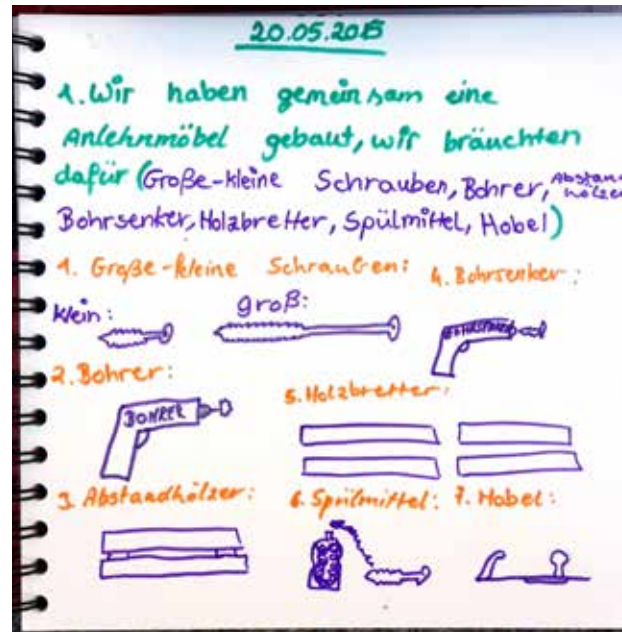 20.05.2015
1. Wir haben gemeinsam eine
Anlehnmöbel gebaut, wir bräuchten
dafür (Große-kleine Schrauben, Bohrer, Abstandhölzer
Bohrsenker, Holzbretter, Spülmittel, Hobel)
1. Große-kleine Schrauben:
klein:
groß:
2. Bohrer:
BOHRER
3. Abstandhölzer:
4. Bohrsenker:
BOHRSENKER
5. Holzbretter:
6. Spülmittel:
7. Hobel: